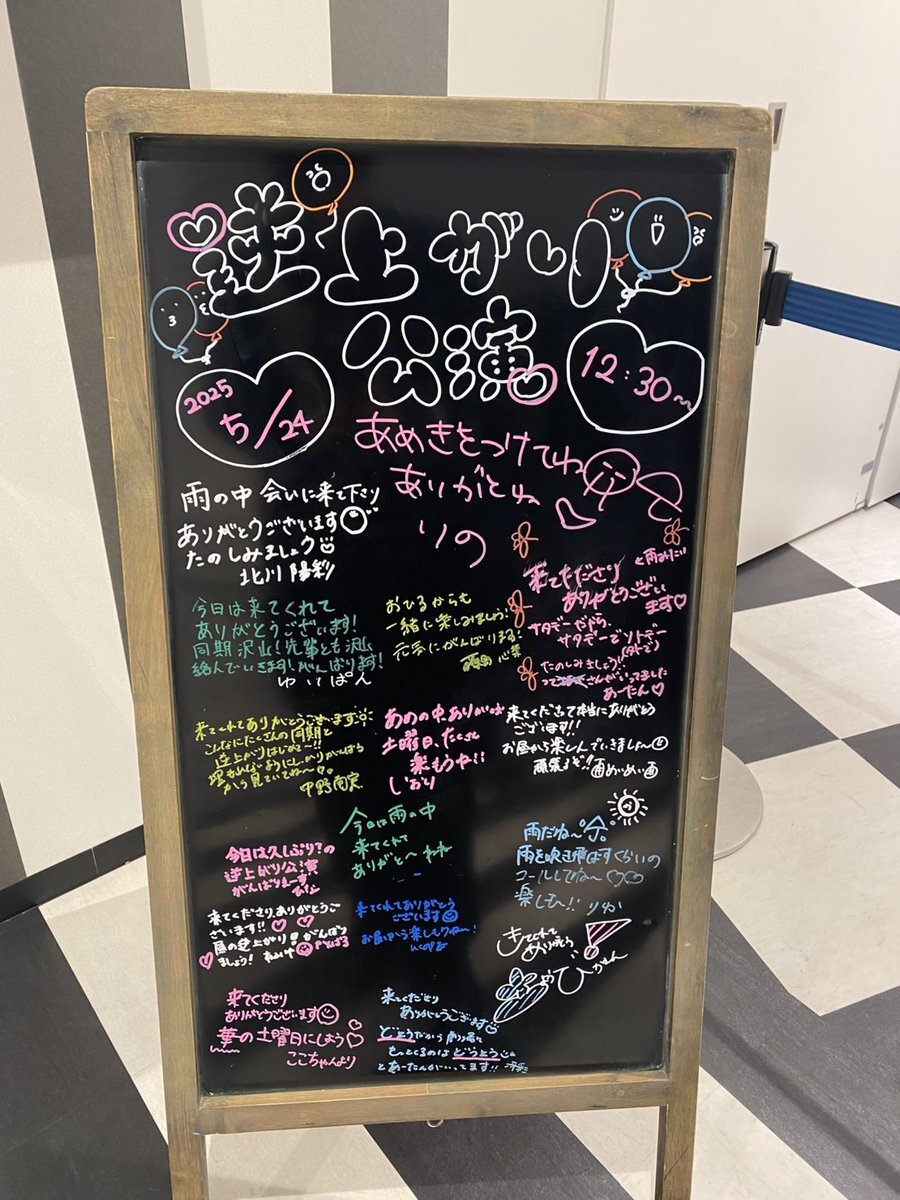 逆上がり
公演
2025
5/24
12:30~
あめきをつけてね
ありがとね
りの
雨の中 会いに来て下さり
ありがとうございます
たのしみましょう
北川 陽彩
今日は来てくれて
ありがとうございます!
同期沢山!先輩とも沢山
絡んでいきます!がんばります!
ゆいぱん
おひるからも
一緒に楽しみましょう!
元気にがんばります!
心菜
と雨みたい
来てくださり
ありがとうござい
ます♡
サタデーやから、
サタデーでソトデー
たのしみましょう!!
さんがいってました
あーたん♡
来てくれてありがとうございます
こんなにたくさんの同期と
逆上がりはじめて~!!
がんばる
から見ていてね~
中野
あめの中、ありがとう
土曜日、たくさん
楽もう!!
しおり
来てくださって本当にありがとう
ございます!!
お昼から楽しんでいきましょ~
頑張るぞ!!
雨めいめい雨
今日は雨の中
来てくれて
ありがと~
今日は久しぶり?の
逆上がり公演
がんばりまーす
雨だね~
雨を吹き飛ばすくらいの
コールしてね~♡♡
楽しも~!! りか
来てくださり、ありがとうご
ざいます!! ♡♡
昼の逆上がり
がんばり
ましょう!
来てくれてありがとう
ございます
お昼から楽しもうね~!
きてくれて
ありがとう
ひかるん
来てくださり
ありがとうございます
華の土曜日にしよう♡
ここちゃんより
来てくださり
ありがとうございます
どようだから
もっとくるのは どようとう
とあーたんがいってます!!